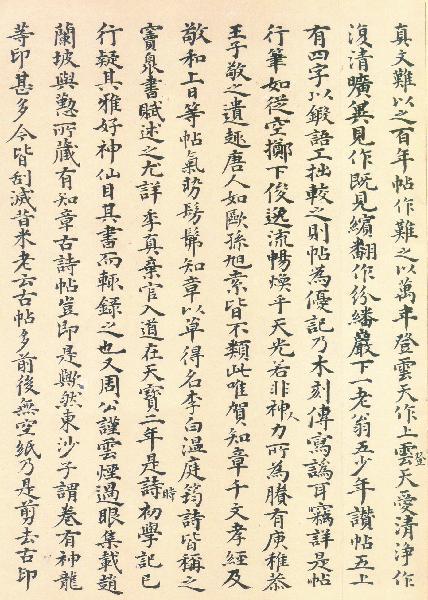 真文難以之百年帖作難之以萬年登雲天作上登雲天愛清淨作
復清曠異見作既見繽翻作紛繙巖下一老翁五少年讚帖五上
有四字以鍛語工拙較之則帖為優記乃木刻傳寫譌耳竊詳是帖
行筆如從空擲下俊逸流暢煥乎天光若非神人力所為賸有庾稚恭
王子敬之遺趣唐人如歐孫旭素皆不類此唯賀知章千文孝經及
敬和上日等帖氣勢髣髴知章以草得名李白溫庭筠詩皆稱之
竇泉書賦述之尤詳季真棄官入道在天寶二年是詩時初學記已
行疑其雅好神仙目其書而輒錄之也又周公謹雲煙過眼集載趙
蘭坡與懃所藏有知章古詩帖豈即是歟然東沙子謂卷有神龍
等印甚多今皆刮滅昔米老云古帖多前後無空紙乃是剪去古印